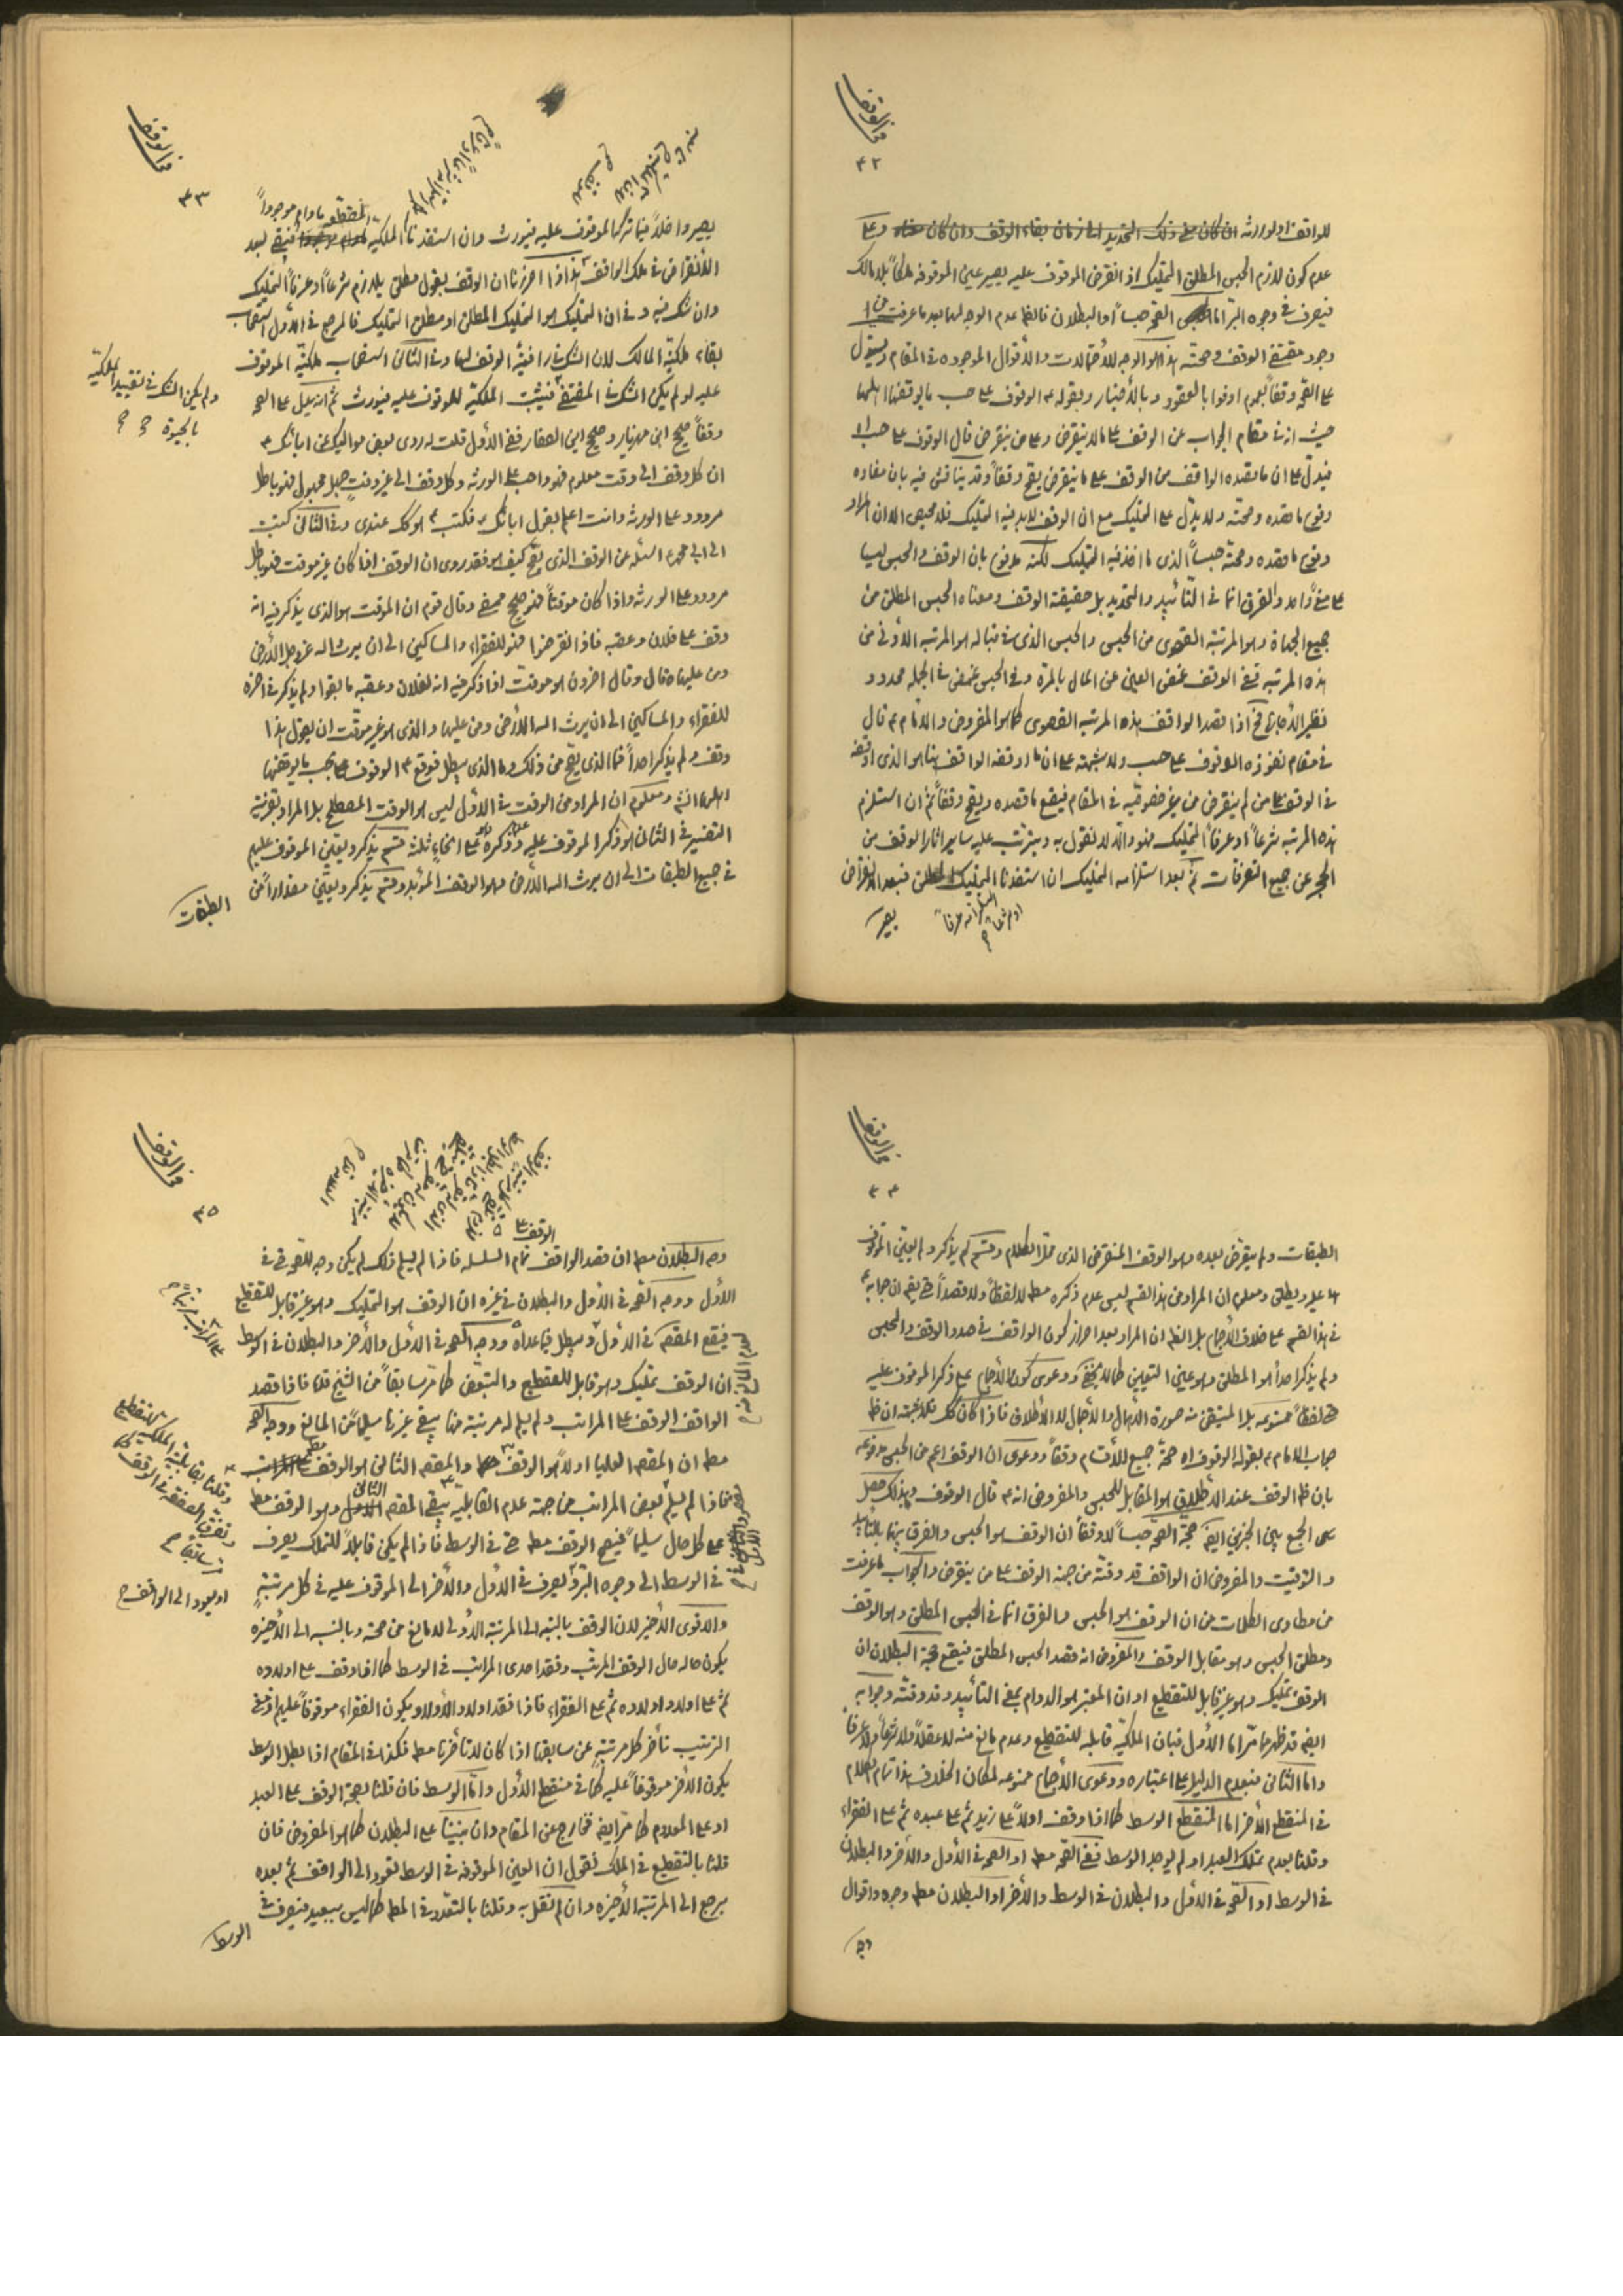 في الوقف
۴۲
للواقف او لورثته ان كان ذلك التحديد الى زمان بقاء الوقف وان كان وعلى
عدم كون لازم الحبس المطلق التمليك اذا انقرض الموقوف عليه يصير عين الموقوفة ملكاً بلا مالك
فيصرف في وجوه البر اما الصحة حبساً او البطلان فالظ عدم الوجه لهما بعد ما عرفت من
وجود مقتضى الوقف وصحته هذا هو الوجه للاحتمالات والأقوال الموجودة في المقام ويستدل
على الصحة وقفاً بعموم اوفوا بالعقود وبالأخبار وبقوله ع الوقوف على حسب ما يوقفها اهلها
حيث انه في مقام الجواب عن الوقف على ما لا ينقرض وعلى من ينقرض قال الوقوف على حسب اه
فيدل على ان ما قصده الواقف من الوقف على ما ينقرض يصح وقفاً وقد يناقش فيه بان مفاده
وقوع ما قصده وصحته ولا يدل على التمليك مع ان الوقف لا بد فيه التمليك فلا محيص الا ان المراد
وقوع ما قصده وصحته حبساً الذي ما اخذ فيه التمليك لكنه مدفوع بان الوقف والحبس ليسا
على شئ واحد والفرق انما في التأبيد والتحديد بل حقيقة الوقف ومعناه الحبس المطلق من
جميع الجهات وهو المرتبة القصوى من الحبس والحبس الذي في قباله هو المرتبة الأدنى من
هذه المرتبة ففي الوقف غمض العين عن المال بالمرة وفي الحبس غمض في الجملة محدود
نظير الأجارة فح اذا قصد الواقف هذه المرتبة القصوى كما هو المفروض والامام ع قال
في مقام نفوذه الوقوف على حسب ولا شبهة على ان ما اوقفه الواقف هنا هو الذي اوقفه
في الوقف على من لم ينقرض من غير خصوصية في المقام فيقع ما قصده ويصح وقفاً ثم ان استلزم
هذه المرتبة شرعاً او عرفاً التمليك فهو والا لا نقول به ويترتب عليه ساير اثار الوقف من
الحجر عن جميع التصرفات ثم بعد استلزامه التمليك ان استفدنا التمليك المطلق فبعد الانقراض
يصير
في الوقف
۴۳
المنقطعة ما دام موجوداً
يصير داخلاً فيما تركه الموقوف عليه فيورث وان استفدنا الملكية فيبقى بعد
الأنقراض في ملك الواقف هذا اذا احرزنا ان الوقف بقول مطلق يلازم شرعاً او عرفاً التمليك
وان شك فيه وفي ان التمليك هو التمليك المطلق او مطلق التمليك فالمرجع في الأول استصحاب
بقاء ملكية المالك لان الشك في رافعية الوقف لها وفي الثاني استصحاب ملكية الموقوف
عليه لو لم يكن الشك في المقتضى فيثبت الملكية للموقوف عليه فيورث ثم انه يدل على الصحة
ولم يكن الشك في تقييد الملكية
بالحيوة
وقفاً صحيح ابن مهزيار وصحيح ابن الصفار ففي الأول قلت له روى بعض مواليك عن ابائك ع
ان كل وقف الى وقت معلوم فهو واجب على الورثة وكل وقف الى غير وقت جهل مجهول فهو باطل
مردود على الورثة وانت اعلم بقول ابائك فكتب ع هو كك عندي وفي الثاني كتبت
الى ابي محمد ع اسئله عن الوقف الذي يصح كيف هو فقد روى ان الوقف اذا كان غير موقت فهو باطل
مردود على الورثة واذا كان موقتاً فهو صحيح ممضى وقال قوم ان الموقت هو الذي يذكر فيه انه
وقف على فلان وعقبه فاذا انقرضوا فهو للفقراء والمساكين الى ان يرث الله عز وجل الأرض
ومن عليها قال وقال اخرون هو موقت اذا ذكر فيه انه لفلان وعقبه ما بقوا ولم يذكر في اخره
للفقراء والمساكين الى ان يرث الله الأرض ومن عليها والذي هو غير موقت ان يقول هذا
وقف ولم يذكر احداً فما الذي يصح من ذلك وما الذي يبطل فوقع ع الوقوف على حسب ما يوقفها
اهلها انش ومعلوم ان المراد من الوقت في الأول ليس هو الوقت المصطلح بل المراد بقرينة
التفسير في الثاني هو ذكر الموقوف عليه وذكره على انحاء ثلثة قسم يذكر ويعين الموقوف عليهم
في جميع الطبقات الى ان يرث الله الأرض وهو الوقف المؤبد وقسم يذكر ويعين مقداراً من
الطبقات
في الوقف
۴۴
الطبقات ولم ينقرض بعده وهو الوقف المنقرض الذي محل الكلام وقسم لم يذكر ولم يعين الموقوف
عليه ويطلق ومعلوم ان المراد من هذا القسم ليس عدم ذكره مط لا لفظاً ولا قصداً حتى يقم ان جوابه ع
في هذا القسم على خلاف الأجماع بل الظ ان المراد بعد احراز كون الواقف في صدد الوقف والحبس
ولم يذكر احداً هو المطلق وهو عين التعيين كما لا يخفى ودعوى كون الأجماع على ذكر الموقوف عليه
حتى لفظاً ممنوعة بل المتيقن منه صورة الأهمال والأجمال لا الأطلاق فاذا كان كك فلا شبهة ان ظ
جواب الامام ع بقوله الوقوف اه صحة جميع الأقسام وقفاً ودعوى ان الوقف اعم من الحبس مدفوعة
بان ظ الوقف عند الأطلاق هو المقابل للحبس والمفروض انه ع قال الوقوف وبذلك حصل
الجمع بين الخبرين ايضً حجة الصحة حبساً لا وقفاً ان الوقف هو الحبس والفرق بينهما بالتأبيد
والتوقيت والمفروض ان الواقف قد وقته من جهة الوقف على من ينقرض والجواب ما عرفت
من مطاوى الكلمات من ان الوقف هو الحبس والفرق انما في الحبس المطلق وهو الوقف
ومطلق الحبس وهو مقابل الوقف والمفروض انه قصد الحبس المطلق فيقع حجة البطلان ان
الوقف تمليك وهو غير قابل للتقطيع او ان المعتبر هو الدوام بمعنى التأبيد وقد وقته وجوابه
ايضً قد ظهر مما مر اما الأول فبان الملكية قابلة للتقطيع وعدم مانع منه لا عقلاً ولا شرعاً ولا عرفاً
واما الثاني فبعدم الدليل على اعتباره ودعوى الأجماع ممنوعة لمكان الخلاف هذا تمام الكلام
في المنقطع الأخر اما المنقطع الوسط كما اذا وقف اولاً على زيد ثم على عبده ثم على الفقراء
وقلنا بعدم تملك العبد او لم يوجد الوسط ففي الصحة مط او الصحة في الأول والأخر والبطلان
في الوسط او الصحة في الأول والبطلان في الوسط والأخر او البطلان مط وجوه واقوال
وجه
في الوقف
۴۵
وجه البطلان مط ان قصد الواقف تمام السلسلة فاذا لم يسلم ذلك لم يكن وجه للصحة حتى في
الأول ووجه الصحة في الأول والبطلان في غيره ان الوقف هو التمليك وهو غير قابل للتقطيع
فيقع المقصد في الأول ويبطل فيما عداه ووجه الصحة في الأول والأخر والبطلان في الوسط
ان الوقف تمليك وهو قابل للتقطيع والتبعض كما مر سابقاً من الشيخ قده فاذا قصد
الواقف الوقف على المراتب ولم يسلم له مرتبة منها يبقى غيرها سليماً عن المانع ووجه الصحة
مط ان المقصد العليا اولاً هو الوقف والمقصد الثاني هو الوقف
فاذا لم يسلم بعض المراتب من جهة عدم القابلية يبقى المقصد الثاني وهو الوقف مط
على كل حال سليماً فيصح الوقف مط حتى في الوسط فاذا لم يكن قابلاً للتملك يصرف
في الوسط الى وجوه البر ويصرف في الأول والأخر الى الموقوف عليه في كل مرتبة
والاقوى الأخير لان الوقف بالنسبة الى المرتبة الأولى لا مانع من صحته وبالنسبة الى الأخيرة
او يعود الى الواقف
يكون حاله حال الوقف المرتب وفقد احدى المراتب في الوسط كما اذا وقف على اولاده
ثم على اولاد اولاده ثم على الفقراء فاذا فقد اولاد الأولاد يكون الفقراء موقوفاً عليهم اذ معنى
الترتيب تأخر كل مرتبة عن سابقها اذا كان لا تأخرها مط فكذا في المقام اذا بطل الوسط
يكون الأخر موقوفاً عليه كما في منقطع الأول واما الوسط فان قلنا بصحة الوقف على العبد
او على المعدوم كما مر ايضً فخارج عن المقام وان بنينا على البطلان كما هو المفروض فان
قلنا بالتقطيع في الملك فنقول ان العين الموقوفة في الوسط تعود الى الواقف ثم بعده
يرجع الى المرتبة الأخيرة وان لم نقل به وقلنا بالتعدد في المط كما ليس ببعيد فيصرف في
الوسط